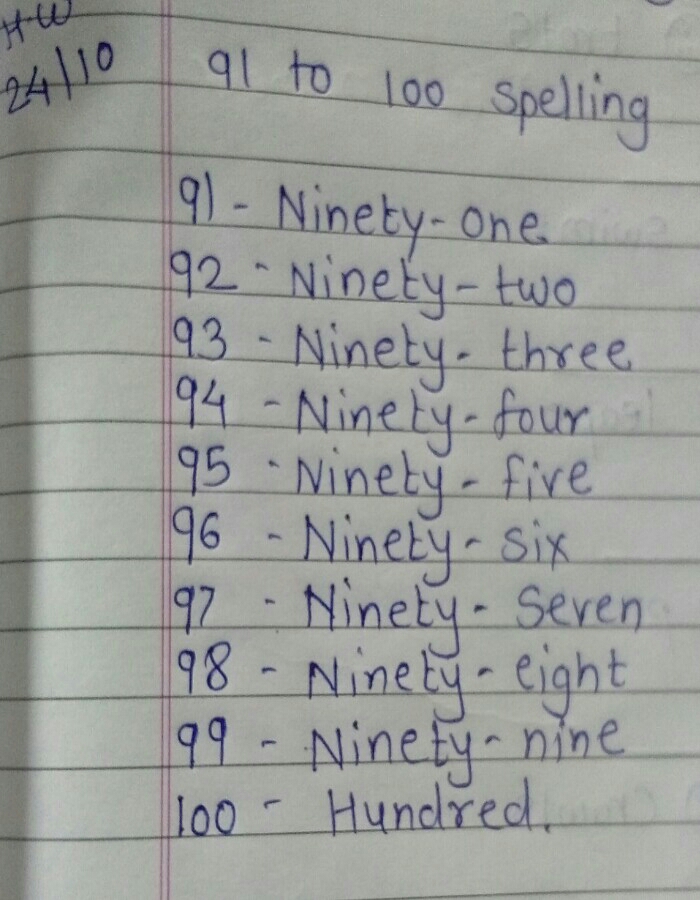 HW
24/10
91 to 100 spelling
91 - Ninety-one
92 - Ninety-two
93 - Ninety-three
94 - Ninety-four
95 - Ninety-five
96 - Ninety-six
97 - Ninety-Seven
98 - Ninety-eight
99 - Ninety-nine
100 - Hundred.